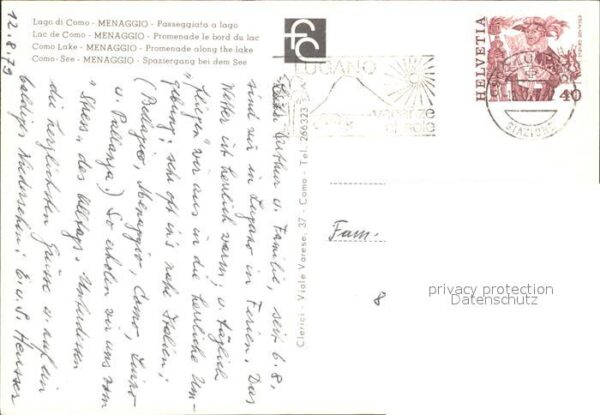 12.8.79
Lago di Como - MENAGGIO - Passeggiata a lago
Lac de Como - MENAGGIO - Promenade le bord du lac
Como Lake - MENAGGIO - Promenade along the lake
Como-See - MENAGGIO - Spaziergang bei dem See
fc
LUGANO
vacanze
al sole
HELVETIA
40
STAZIONE
Clerici - Viale Varese, 37 - Como - Tel. 266323
Arthur u. Familie, seit 6.8.
sind wir in Lugano in Ferien. Das
Wetter ist herrlich warm, u. täglich
"fliegen" wir aus in die herrliche Um-
gebung, sehr oft in's nahe Italien,
(Bellagio, Menaggio, Como, Luino
u. Pallanza.) So erholen wir uns vom
"Stress" des Alltags. Unterdessen
die herzlichsten Grüsse u. auf ein
baldiges Wiedersehen, E. u. S. Hauser
Fam.
8
privacy protection
Datenschutz